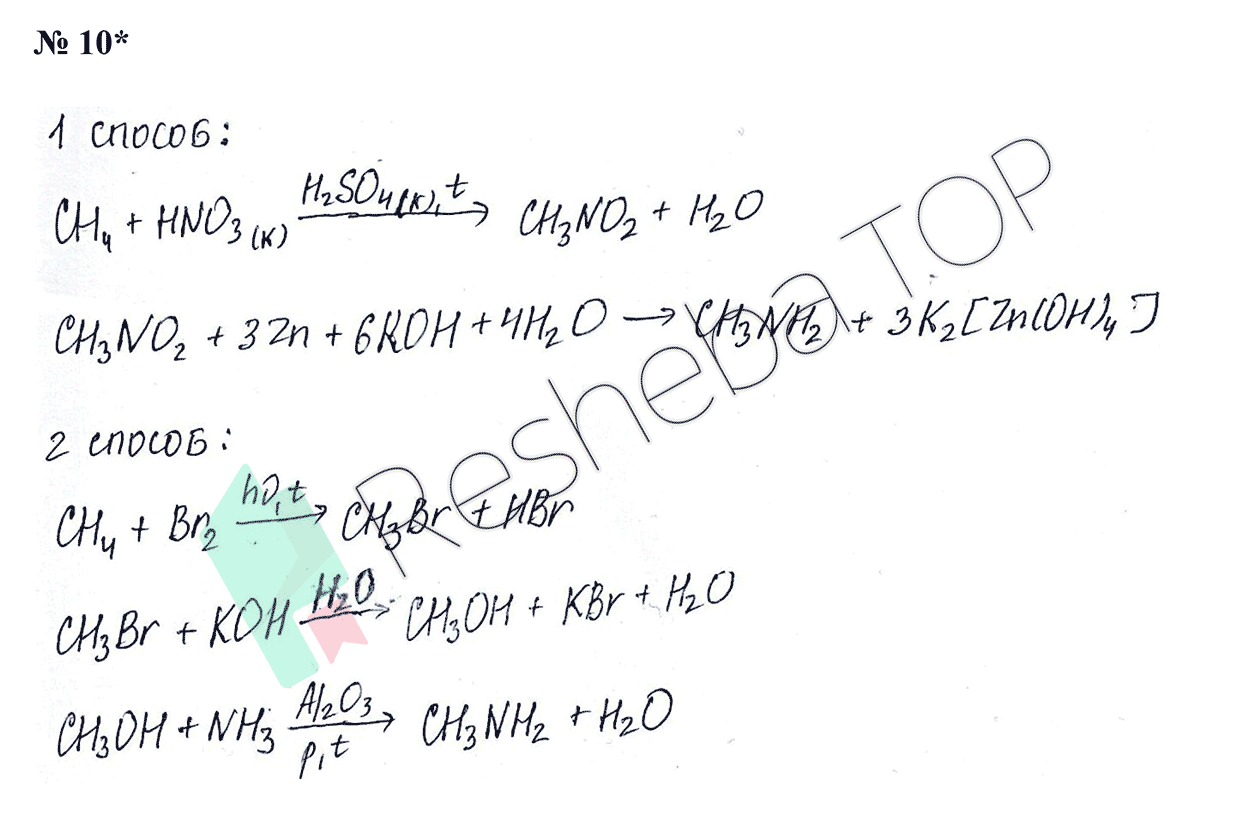 № 10*
1 способ:
CH₄ + HNO₃(к) H₂SO₄(к), t → CH₃NO₂ + H₂O
CH₃NO₂ + 3Zn + 6KOH + 4H₂O → CH₃NH₂ + 3K₂[Zn(OH)₄]
2 способ:
CH₄ + Br₂ hν, t → CH₃Br + HBr
CH₃Br + KOH H₂O → CH₃OH + KBr + H₂O
CH₃OH + NH₃ Al₂O₃ p, t → CH₃NH₂ + H₂O
Resheba TOP